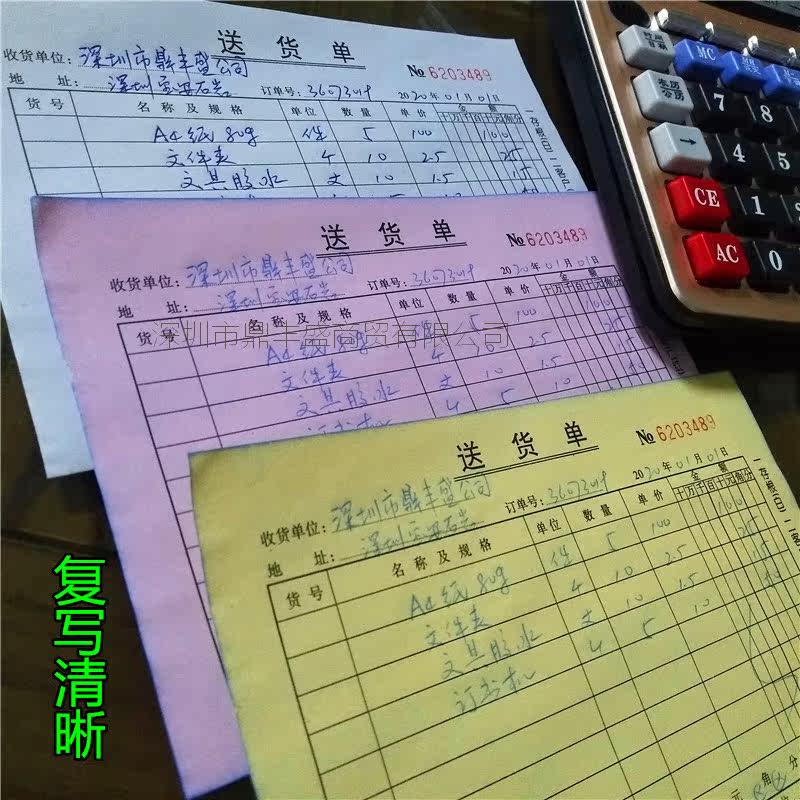 送货单
№ 6203489
收货单位: 深圳市鼎丰盛公司
地 址: 深圳宝安石岩 订单号: 3607319 2020年01月01日
货号 名称及规格 单位 数量 单价 金额
十万千百十元角分
A4纸 80g 件 5 100 100
文件夹 10 2.5 25
文具胶水 10 1.5 15
送货单
№ 6203489
收货单位: 深圳市鼎丰盛公司
地 址: 深圳宝安石岩 订单号: 3607319 2020年01月01日
货号 名称及规格 单位 数量 单价 金额
十万千百十元角分
深圳市鼎丰盛商贸有限公司
A4纸 80g 5 100 100
文件夹 10 2.5 25
文具胶水 10 1.5 15
订书机 5 10
送货单
№ 6203489
收货单位: 深圳市鼎丰盛公司
地 址: 深圳宝安石岩 订单号: 3607319 2020年01月01日
货号 名称及规格 单位 数量 单价 金额
十万千百十元角分
A4纸 80g 件 5 100 100
文件夹 10 2.5 25
文具胶水 10 1.5 15
订书机 5 10
元 角 分
一存根(白)
MC
农历公历
7 8
→
4 5
CE
1
AC
0
复写清晰